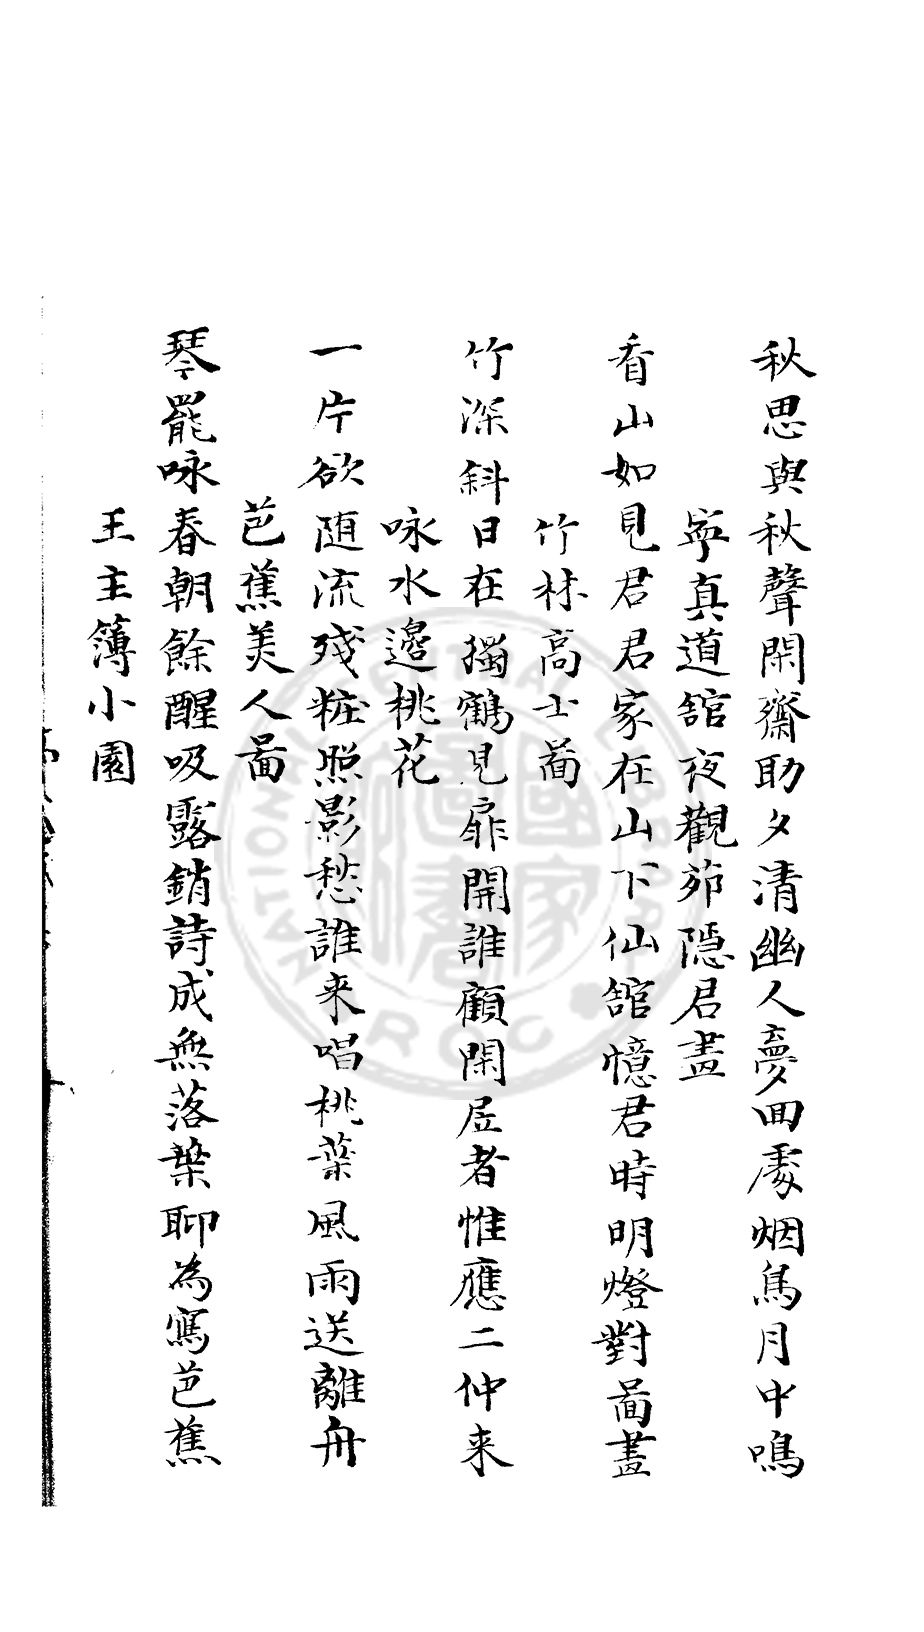 秋思與秋聲閑齋助夕清幽人夢回處烟鳥月中鳴
寧真道舘夜觀茆隠君畫
看山如見君君家在山下仙舘憶君時明燈對啚畫
竹林高士啚
竹深斜日在獨鶴見扉開誰顧閑居者惟應二仲来
咏水邊桃花
一片欲随流殘粧照影愁誰来唱桃葉風雨送離舟
芭蕉美人啚
琴罷咏春朝餘醒吸露銷詩成無落葉聊為寫芭蕉
王主簿小園
NATIONAL CENTRAL LIBRARY
R.O.C
國家圖書館